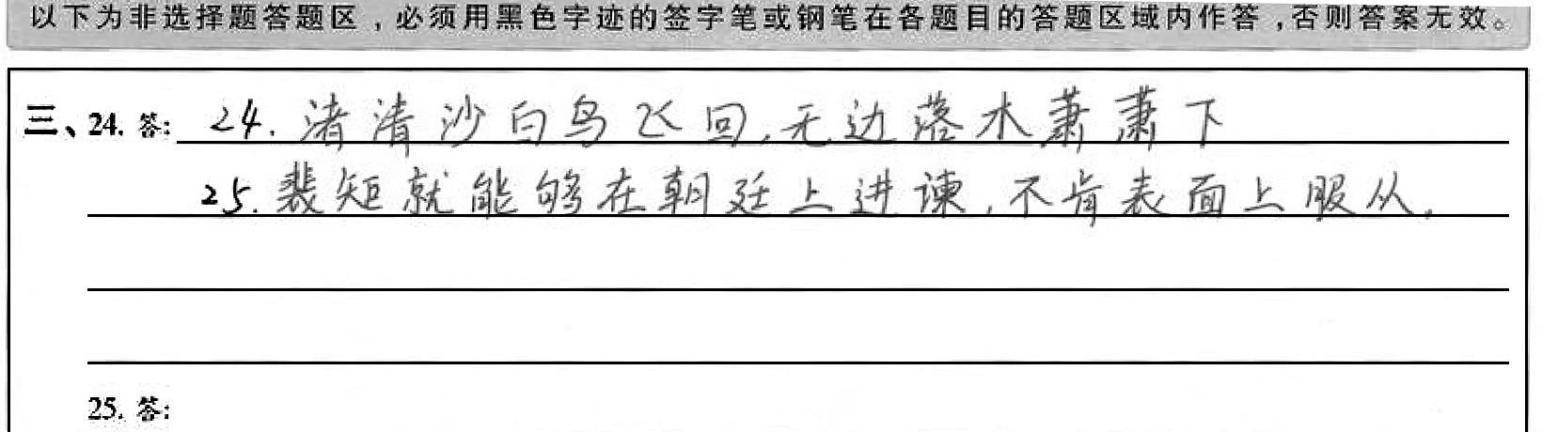 以下为非选择题答题区，必须用黑色字迹的签字笔或钢笔在各题目的答题区域内作答，否则答案无效。
三、24. 答: 24. 渚清沙白鸟飞回,无边落木萧萧下
25. 裴矩就能够在朝廷上进谏,不肯表面上服从.
25. 答: